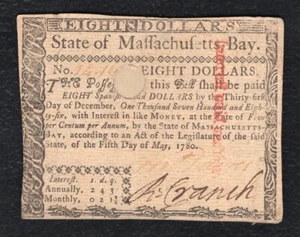 EIGHT DOLLARS.
State of Maſſachuſetts-Bay.
No. EIGHT DOLLARS.
THE Poſſeſſor of this Bill ſhall be paid
EIGHT Spaniſh DOLLARS by the Thirty-firſt
Day of December, One Thouſand Seven Hundred and Eigh-
ty-ſix, with Intereſt in like MONEY, at the Rate of Five
per Centum per Annum, by the State of MASSACHUSETTS-
BAY, according to an Act of the Legiſlature of the ſaid
State, of the Fifth Day of May, 1780.
Intereſt. s. d. q.
Annually. 2 4 3
Monthly. 0 2 1
R. Cranch